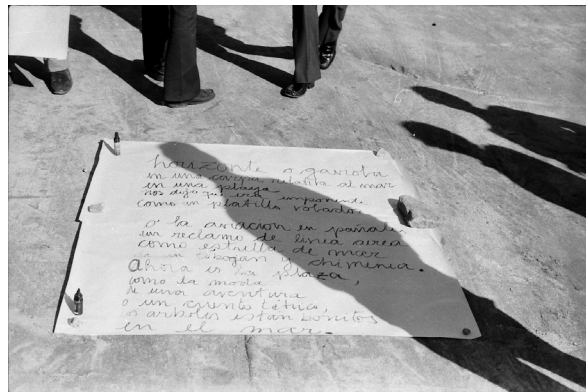 horizonte o gaviota
en una carpa relata al mar
en una playa
nos dejo que era imponente
como un platillo volador
o la aviacion en pañales
un reclamo de linea aerea
como estrella de mar
y chimenia.
Ahora is la plaza,
como la moda
de una aventura
o un cuento
o arboles estan bonitos
en el mar.